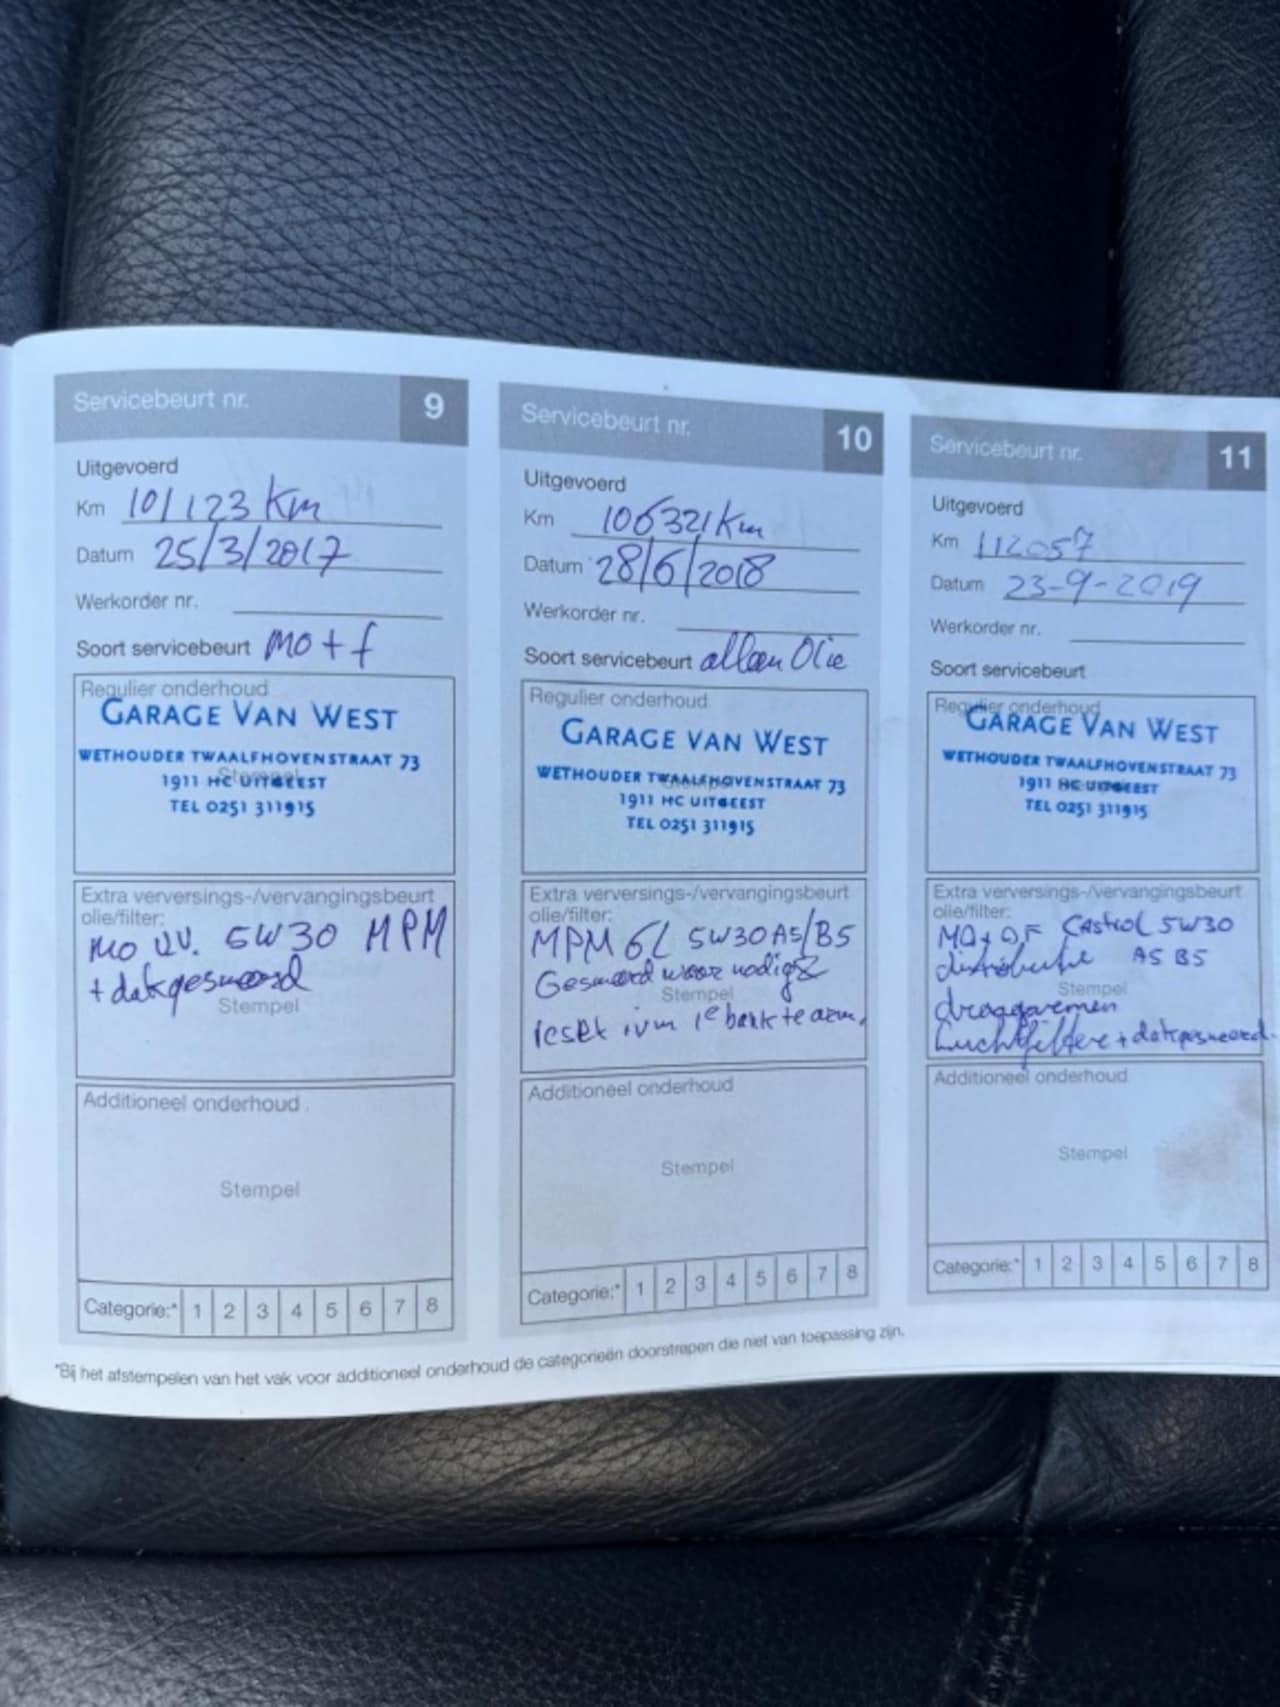 Servicebeurt nr. 9
Uitgevoerd
Km 101123 Km
Datum 25/3/2017
Werkorder nr.
Soort servicebeurt MO + f
Regulier onderhoud
GARAGE VAN WEST
WETHOUDER TWAALFHOVENSTRAAT 73
1911 HC UITGEEST
TEL 0251 311915
Extra verversings-/vervangingsbeurt
olie/filter:
MO VV. 5W30 MPM
+ dakgesmeerd
Stempel
Additioneel onderhoud
Stempel
Categorie:* 1 2 3 4 5 6 7 8
Servicebeurt nr. 10
Uitgevoerd
Km 106321 Km
Datum 28/6/2018
Werkorder nr.
Soort servicebeurt alleen Olie
Regulier onderhoud
GARAGE VAN WEST
WETHOUDER TWAALFHOVENSTRAAT 73
1911 HC UITGEEST
TEL 0251 311915
Extra verversings-/vervangingsbeurt
olie/filter:
MPM 6L 5W30 A5/B5
Gesmeerd waar nodig &
Stempel
reset ivm 1e bank te arm.
Additioneel onderhoud
Stempel
Categorie:* 1 2 3 4 5 6 7 8
Servicebeurt nr. 11
Uitgevoerd
Km 112057
Datum 23-9-2019
Werkorder nr.
Soort servicebeurt
Regulier onderhoud
GARAGE VAN WEST
WETHOUDER TWAALFHOVENSTRAAT 73
1911 HC UITGEEST
TEL 0251 311915
Extra verversings-/vervangingsbeurt
olie/filter:
MO + OF Castrol 5W30
distributie A5 B5
Stempel
Luchtfilter + dakgesmeerd.
Additioneel onderhoud
Stempel
Categorie:* 1 2 3 4 5 6 7 8
*Bij het afstempelen van het vak voor additioneel onderhoud de categorieën doorstrepen die niet van toepassing zijn.